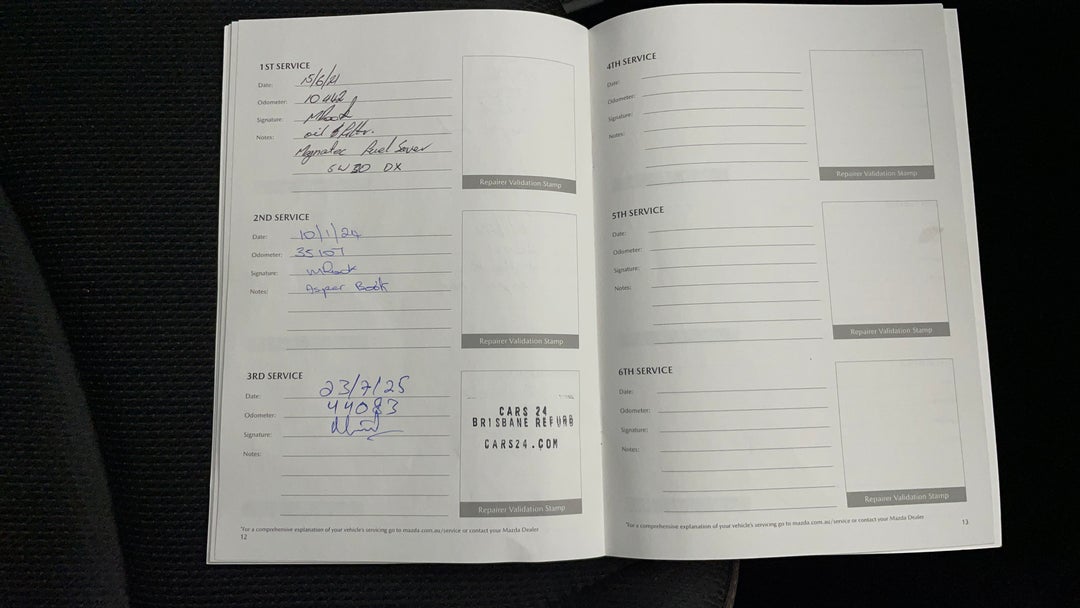 1ST SERVICE
Date: 15/6/21
Odometer: 10442
Signature:
Notes: oil & filter.
Magnatec Fuel Saver
5W30 DX
Repairer Validation Stamp
2ND SERVICE
Date: 10/1/24
Odometer: 35107
Signature:
Notes: Asper Book
Repairer Validation Stamp
3RD SERVICE
Date: 23/7/25
Odometer: 44083
Signature:
Notes:
CARS 24
BRISBANE REFURB
CARS24.COM
Repairer Validation Stamp
*For a comprehensive explanation of your vehicle's servicing go to mazda.com.au/service or contact your Mazda Dealer
12
4TH SERVICE
Date:
Odometer:
Signature:
Notes:
Repairer Validation Stamp
5TH SERVICE
Date:
Odometer:
Signature:
Notes:
Repairer Validation Stamp
6TH SERVICE
Date:
Odometer:
Signature:
Notes:
Repairer Validation Stamp
*For a comprehensive explanation of your vehicle's servicing go to mazda.com.au/service or contact your Mazda Dealer
13